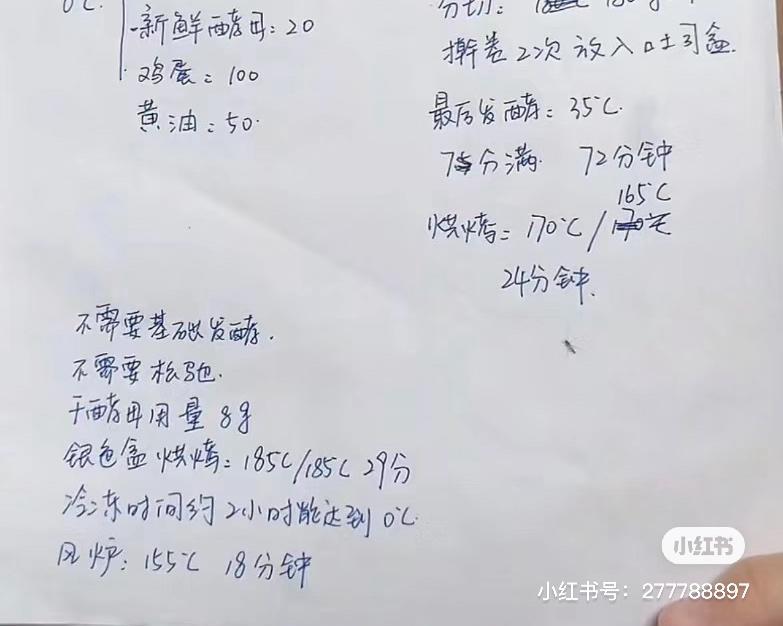 0℃.
新鲜酵母:20
鸡蛋:100
黄油:50.
分切:
擀卷2次 放入吐司盒.
最后发酵:35℃.
分满. 72分钟
165℃
烘烤:170℃/
24分钟.
不需要基础发酵.
不需要松弛.
干酵母用量 8g
银色盒烘烤:185℃/185℃ 29分
冷冻时间约2小时能达到0℃.
风炉:155℃ 18分钟
小红书
小红书号:277788897